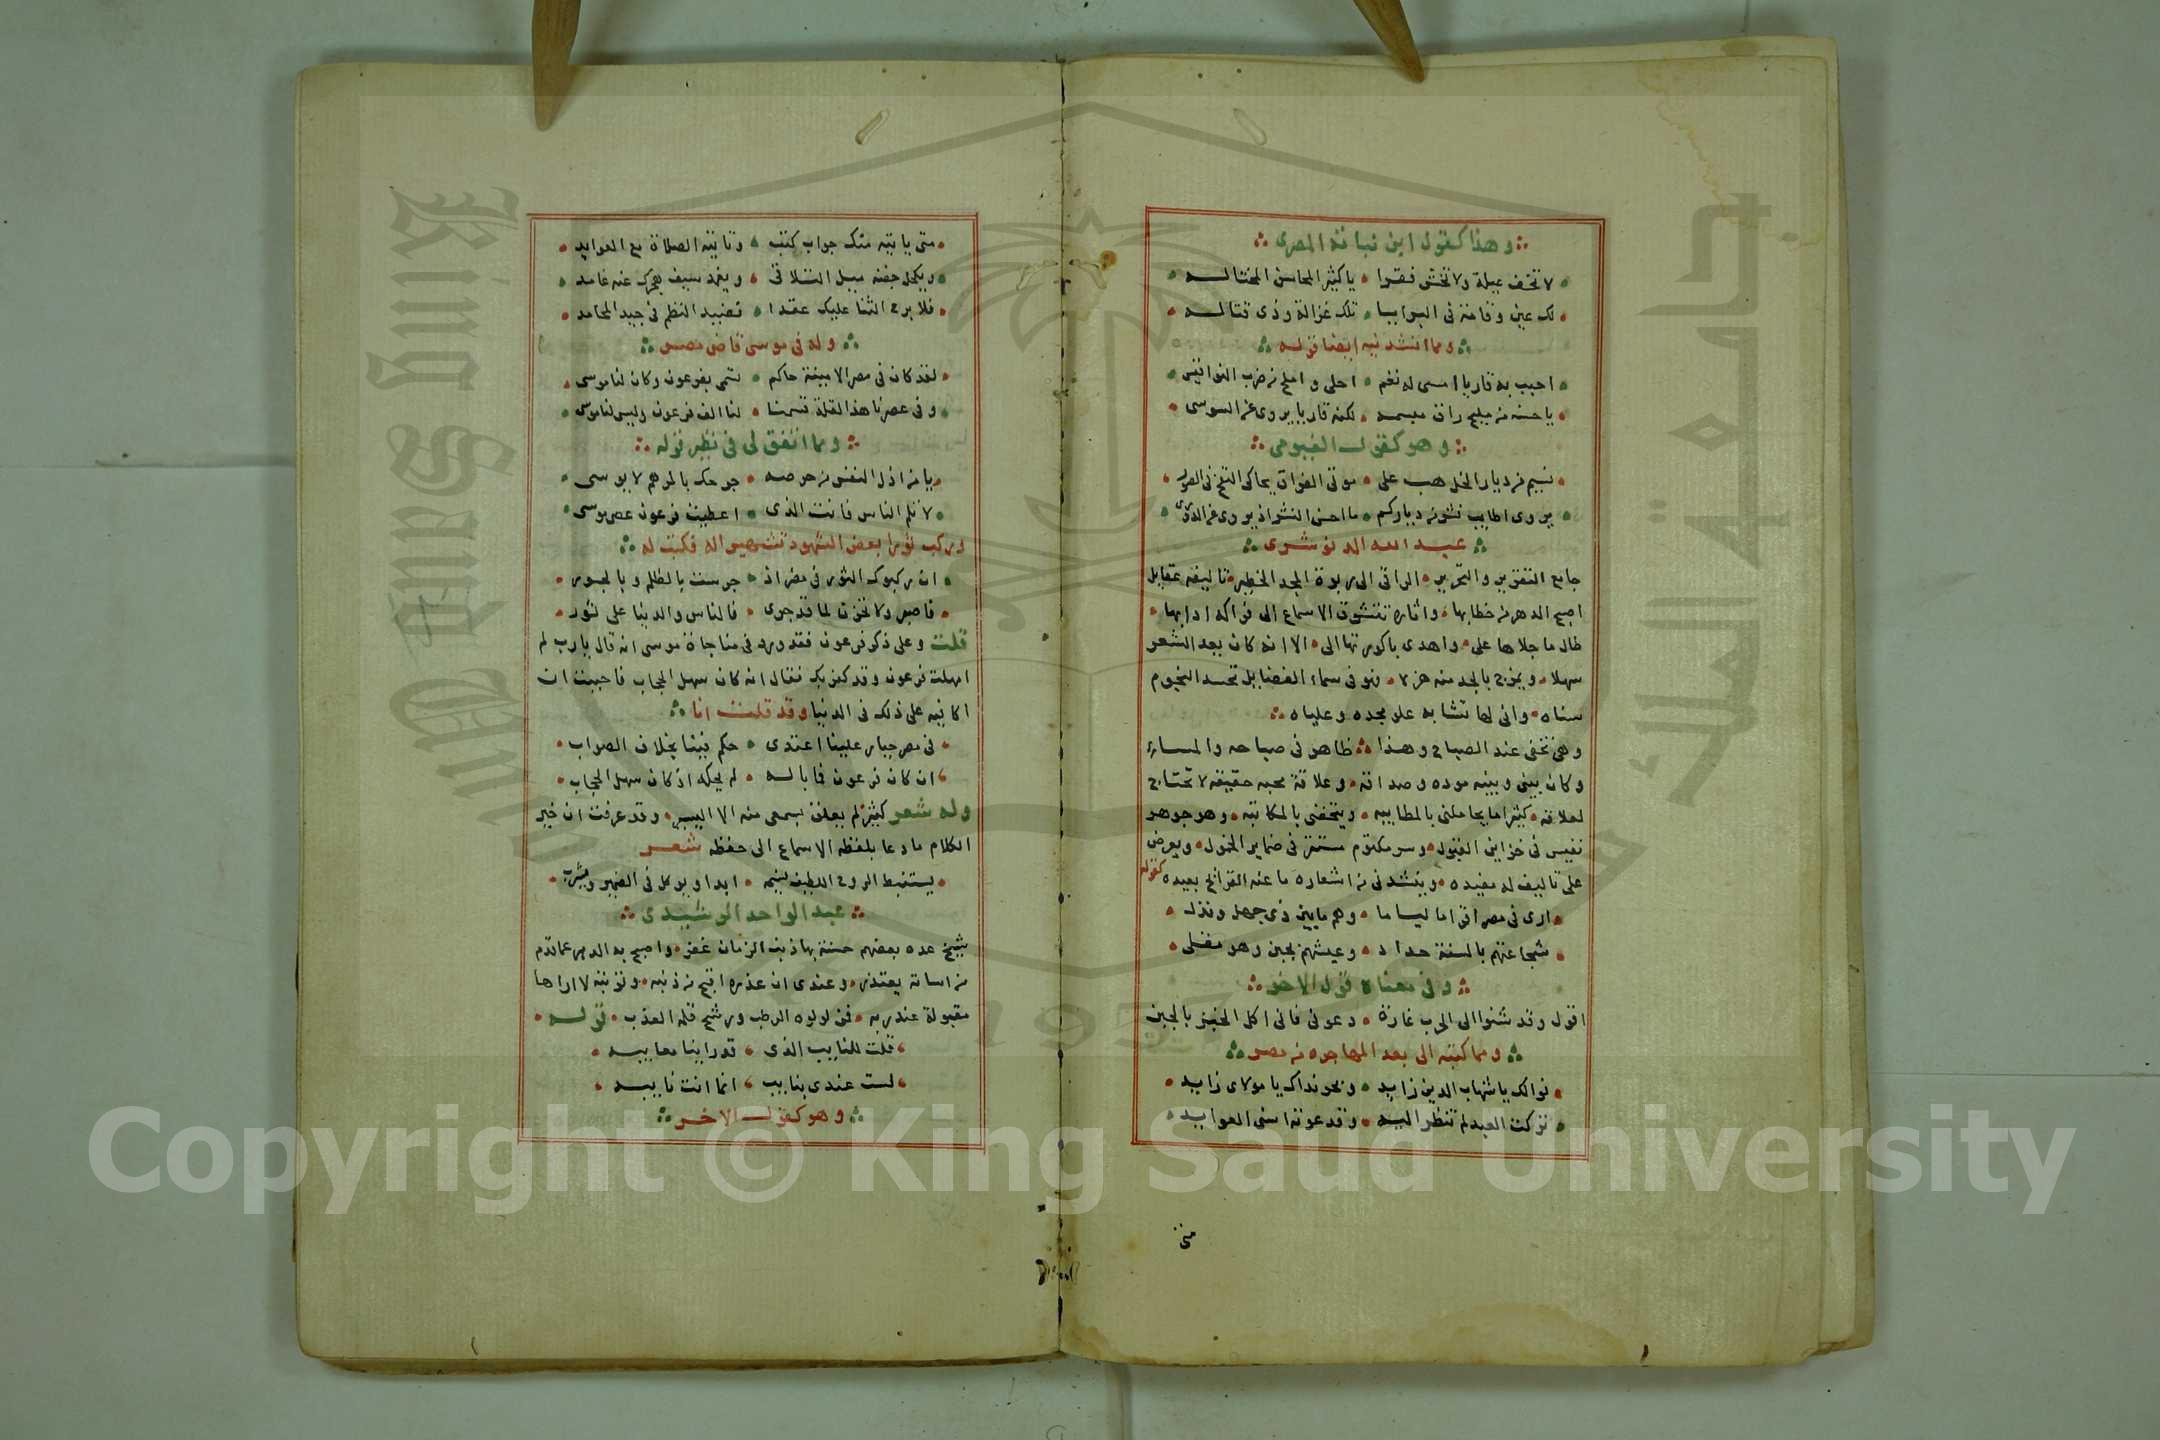 وهذا كقول ابن نباته المصرى
لا تخف عيلة ولا تخش فقرا يا كثير المحاسن المختاله
لك عين وقامة فى البرايا تلك غزالة وذى قتاله
ومما انشدنيه ايضا قوله
احبب به قاريا امسى له نغم احلى واملح من ضرب النواقيس
يا حسنه من مليح راق مبسمه لكنه قاريا يروى عن السوسى
وهو كقول الفيومى
نسيم من ديار الخل هب على موتى الفراق يحاكى النفخ فى الصور
يروى اطايب نشر من دياركم ما احسن النشر اذ يروى عن الدورى
عبد الله الدنوشرى
جامع التقرير والتحرير الراقى الى ربوة المجد الخطير تاليفه عقايل
اصبح الدهر من خطابها واثاره تتشوق الاسماع الى فواكه ادابها
طال ما جلاها على واهدى باكورتها الى الا انه كان بعد الشعر
سهلا ويمزج بالجد منه هزلا وهو فى سماء الفضايل تحسد النجوم
سناه وانى لها تشابه علو مجده وعلياه
وهى تخفى عند الصباح وهذا ظاهر فى صباحه والمساء
وكان بينى وبينه موده وصداقه وعلاقة محبه حقيقه لا تحتاج
لعلاقه كثيرا ما يجاملنى بالمطايبه ويتحفنى بالمكاتبه وهو جوهر
نفيس فى خزاين القبول وسر مكتوم مستتر فى ضماير الخمول ويعرض
على تاليف له مفيده وينشدنى من اشعاره ما عنه القرائح بعيده كقوله
ارى فى مصر اقواما ليا ما وهم ما بين ذى جهل ونذل
شجاعتهم بالسنة حداد وعيشهم بجبن وهو مقلى
وفى معناه قول الاخر
اقول وقد شنوا الى الحرب غارة دعونى فانى اكل الخبز بالجبن
ومما كتبه الى بعد المهاجره من مصر
نوالك يا شهاب الدين زايد وبحر نداك يا مولاى زايد
تركت العبد لم تنظر اليه وقد عودته اسنى العوايد
متى
متى ياتيه منك جواب كتب وتاتيه الصلاة مع العوايد
ويكحل جفنه ميل التلاقى ويغمد سيف هجرك عنه غامد
فلا برح الثنا عليك عقدا نضيد النظم فى جيد المحامد
وله فى موسى قاضى مصر
لقد كان فى مصر الامينة حاكم تسمى بفرعون وكان لنا موسى
وفى عصرنا هذا لقلة قسمنا لنا الف فرعون وليس لنا موسى
ومما اتفق لى فى نظير قوله
يا من اذل النفس من حرصه جرحك بالمرهم لا يوسى
لا تلم الناس فانت الذى اعطيت فرعون عصى موسى
وركب ثورا بعض الشهود تشهيرا له فكتبت له
ان ركبوك الثور فى مصر اذ جرست بالظلم وبالجور
فاصبر ولا تحزن لما قد جرى فالناس والدنيا على ثور
قلت وعلى ذكر فرعون فقد ورد فى مناجاة موسى انه قال يا رب لم
امهلت فرعون وقد كفر بك فقال انه كان سهل الحجاب فاحببت ان
اكافيه على ذلك فى الدنيا وقد قلت انا
فى مصر جبار علينا اعتدى حكم فينا بخلاف الصواب
ان كان فرعون فما باله لم يحكه اذ كان سهل الحجاب
وله شعر كثير لم يعلق بسمعى منه الا اليسير وقد عرفت ان خير
الكلام ما دعا بلفظه الاسماع الى حفظه شعر
يستنبط الروح اللطيف نسيمه ابدا ويوكل فى الضمير ويشرب
عبد الواحد الرشيدى
شيخ عده بعضهم حسنة بها ذنب الزمان غفر واصبح به الدهر عما قدم
من اساته يعتذر وعندى ان عذره اقبح من ذنبه وتوبته لا اراها
مقبولة عند ربه فمن لولوه الرطب ورشح قلمه العذب قوله
قلت للنايب الذى قد راينا معايبه
لست عندى بنايب انما انت نايبه
وهو كقول الاخر
Copyright © King Saud University
King Saud University
1957